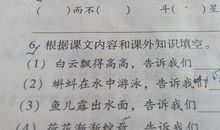 ）而不（ ） 斗（ ）星
6、根据课文内容和课外知识填空。
(1) 白云飘得高高，告诉我们
(2) 蝌蚪在水中游泳，告诉我们
(3) 鱼儿露出水面，告诉我们
(4) 荷花渐渐